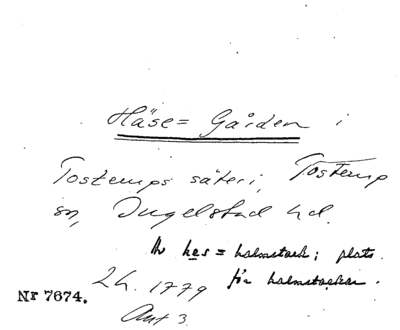 Häse= Gården i
Tostemps säteri, Tostemp
sn, Ingelstad hd.
hes = halmstack; plats
för halmstackar.
2h. 1779
Akt 3
Nr 7674.